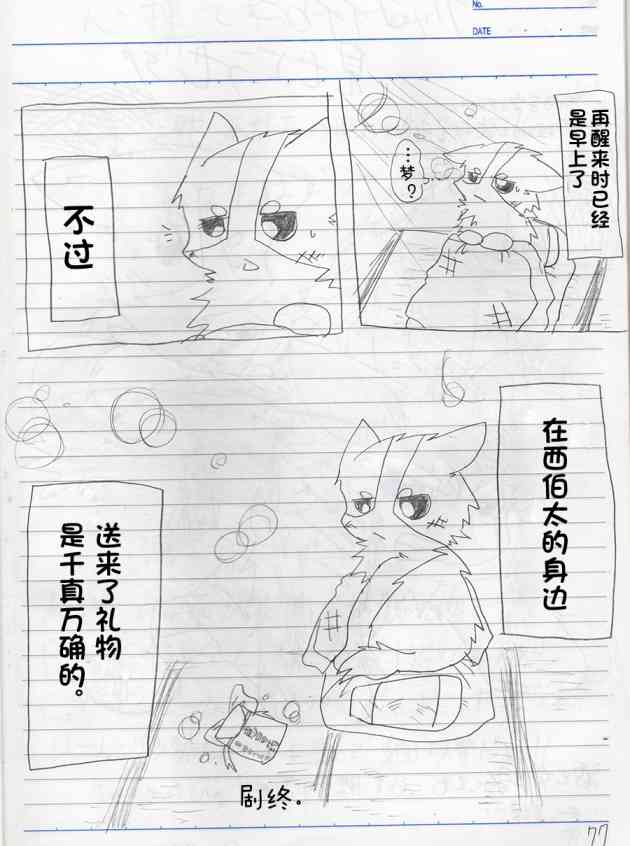 No.
DATE
再醒来时已经
是早上了
…梦?
不过
在西伯太的身边
送来了礼物
是千真万确的。
剧终。
77